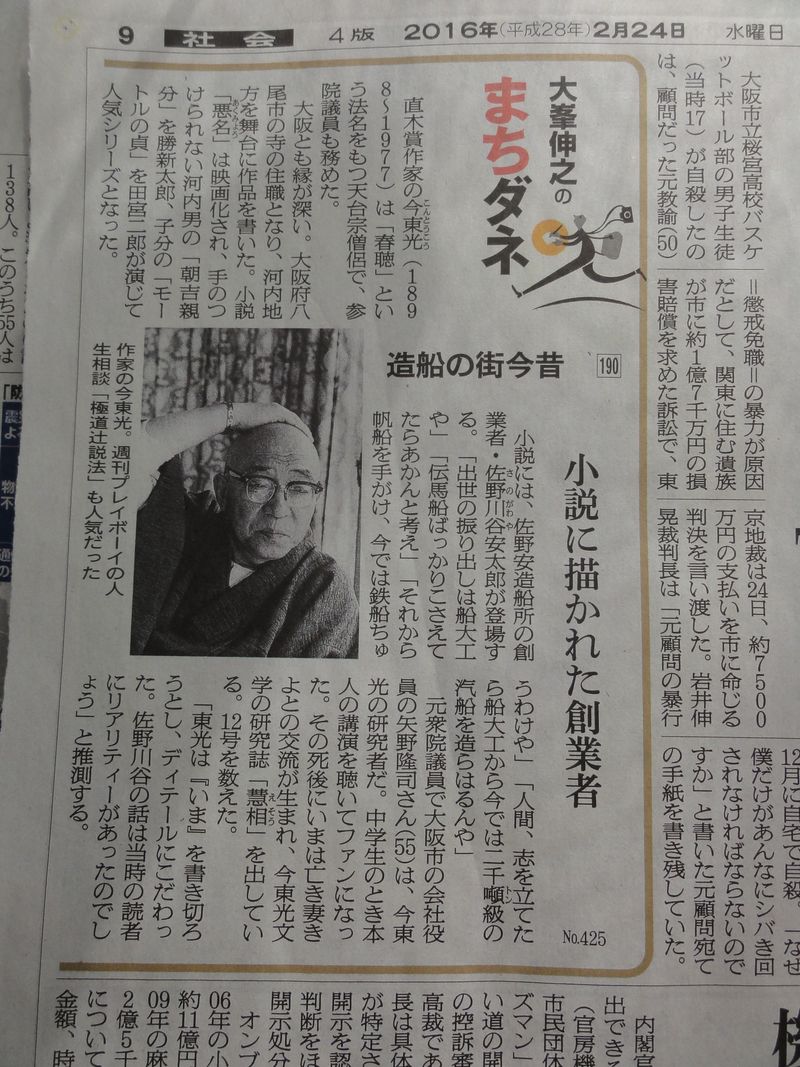 9 社会 4版 2016年(平成28年)2月24日 水曜日
大阪市立桜宮高校バスケ
ットボール部の男子生徒
(当時17)が自殺したの
は、顧問だった元教諭(50)
=懲戒免職=の暴力が原因
だとして、関東に住む遺族
が市に約1億7千万円の損
害賠償を求めた訴訟で、東
京地裁は24日、約7500
万円の支払いを市に命じる
判決を言い渡した。岩井伸
晃裁判長は「元顧問の暴行
12月に自宅で自殺。「なぜ
僕だけがあんなにシバき回
されなければならないので
すか」と書いた元顧問宛て
の手紙を書き残していた。
大峯伸之の
まちダネ
造船の街今昔
190
小説に描かれた創業者
No.425
直木賞作家の今東光(189
こんとうこう
8~1977)は「春聴」とい
う法名をもつ天台宗僧侶で、参
院議員も務めた。
大阪とも縁が深い。大阪府八
尾市の寺の住職となり、河内地
方を舞台に作品を書いた。小説
「悪名」は映画化され、手のつ
あくみょう
けられない河内男の「朝吉親
分」を勝新太郎、子分の「モー
トルの貞」を田宮二郎が演じて
人気シリーズとなった。
小説には、佐野安造船所の創
業者・佐野川谷安太郎が登場す
さのがわや
る。「出世の振り出しは船大工
や」「伝馬船ばっかりこさえて
たらあかんと考え」「それから
帆船を手がけ、今では鉄船ちゅ
うわけや」「人間、志を立てた
ら船大工から今では二千噸級の
トン
汽船を造らはるんや」
元衆院議員で大阪市の会社役
員の矢野隆司さん(55)は、今東
光の研究者だ。中学生のとき本
人の講演を聴いてファンになっ
た。その死後にいまは亡き妻き
よとの交流が生まれ、今東光文
学の研究誌「慧相」を出してい
えそう
る。12号を数えた。
「東光は『いま』を書き切ろ
うとし、ディテールにこだわっ
た。佐野川谷の話は当時の読者
にリアリティーがあったのでし
ょう」と推測する。
作家の今東光。週刊プレイボーイの人
生相談「極道辻説法」も人気だった
138人。このうち55人は
内閣官
出できる
(官房機
市民団体
ズマン」
い道の開
の控訴審
高裁であ
長は具体
が特定さ
開示を認
判断をほ
開示処分
オンブ
06年の小
約11億円
09年の麻
2億5千
について
金額、時